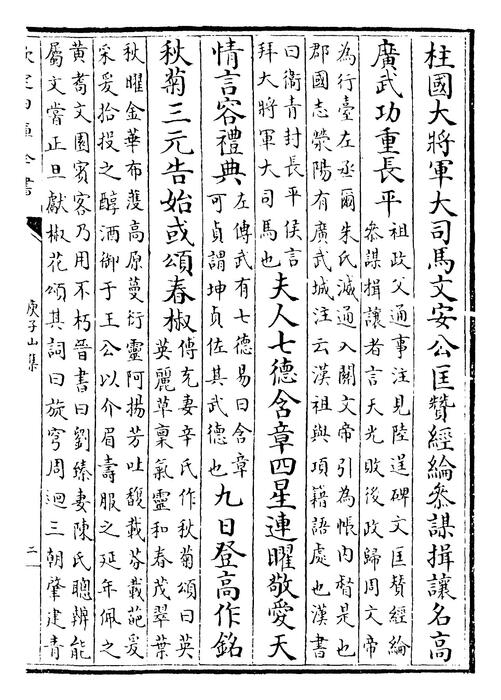 柱國大將軍大司馬文安公匡贊經綸參謀揖讓名高
廣武功重長平
祖政父通事注見陸逞碑文匡賛經綸
參謀揖讓者言天光敗後政歸周文帝
為行臺左丞爾朱氏滅通入關文帝引為帳内督是也
郡國志滎陽有廣武城注云漢祖與項籍語處也漢書
曰衞青封長平侯言
拜大將軍大司馬也
夫人七德含章四星連曜敬愛天
情言容禮典
左傳武有七德易曰含章
可貞謂坤貞佐其武德也
九日登高作銘
秋菊三元告始或頌春椒
傅充妻辛氏作秋菊頌曰英
英麗草稟氣靈和春茂翠葉
秋曜金華布護高原蔓衍靈阿揚芳吐馥載芬載葩爰
采爰拾投之醇酒御于王公以介眉壽服之延年佩之
黄耉文園賓客乃用不朽晉書曰劉臻妻陳氏聰辨能
屬文嘗正旦獻椒花頌其詞曰旋穹周迴三朝肇建青
欽定四庫全書
庾子山集
二